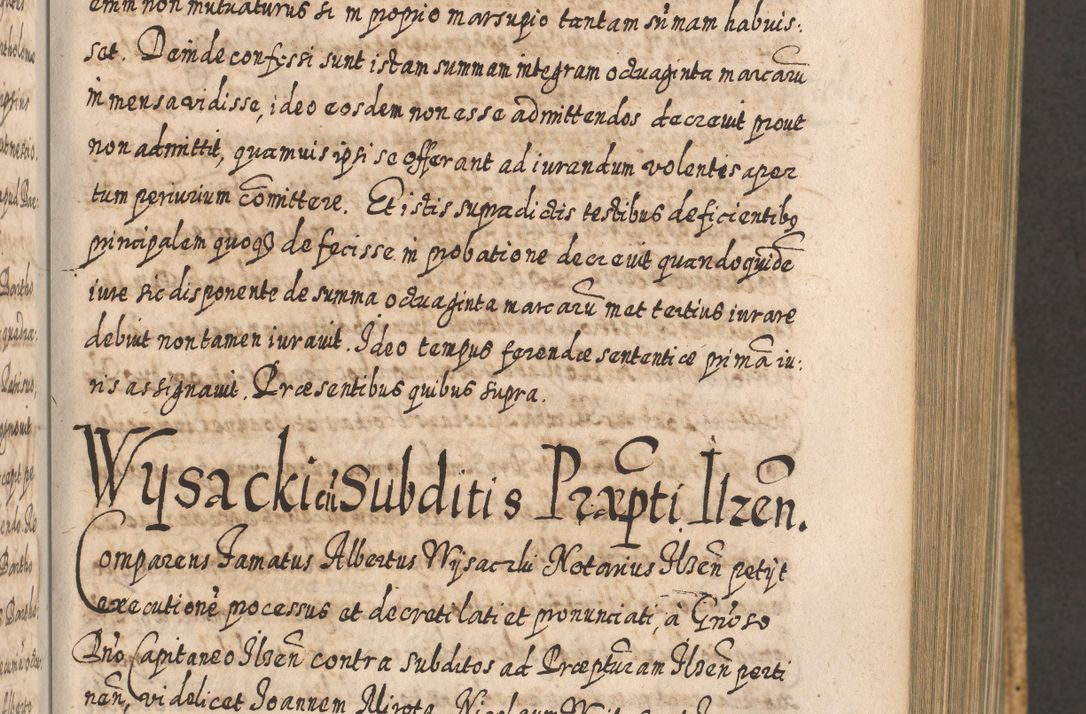 enim non mutuaturus si in proprio marsupio tantam sumam habuis:
set. Deinde confessi sunt istam summam integram octuaginta marcarū
in mensa vidisse, ideo eosdem non esse admittendos decrevit prout
non admittit, quamuis ipsi se offerant ad iurandum volentes aper
tum periurium cōmittere. Et istis supradictis testibus deficientibꝯ
principalem quoqꝫ defecisse in probatione decrevit quandoquidē
iure sic disponente de summa octuaginta marcarū met tertius iurare
debuit non tamen iuravit. Ideo tempus ferendæ sententiæ primā iu:
ris assignavit. Præsentibus quibus supra.
Wysacki cū Subditis Præpti Ilzēn.
Comparens famatus Albertus Wysaczki Notarius Ilzēn petijt
executionē processus et decreti lati et pronunciati, à Gnoso
Dño Capitaneo Ilzēn contra subditos ad Præpturam Ilzēn perti
nēn, videlicet Joannem Mirota